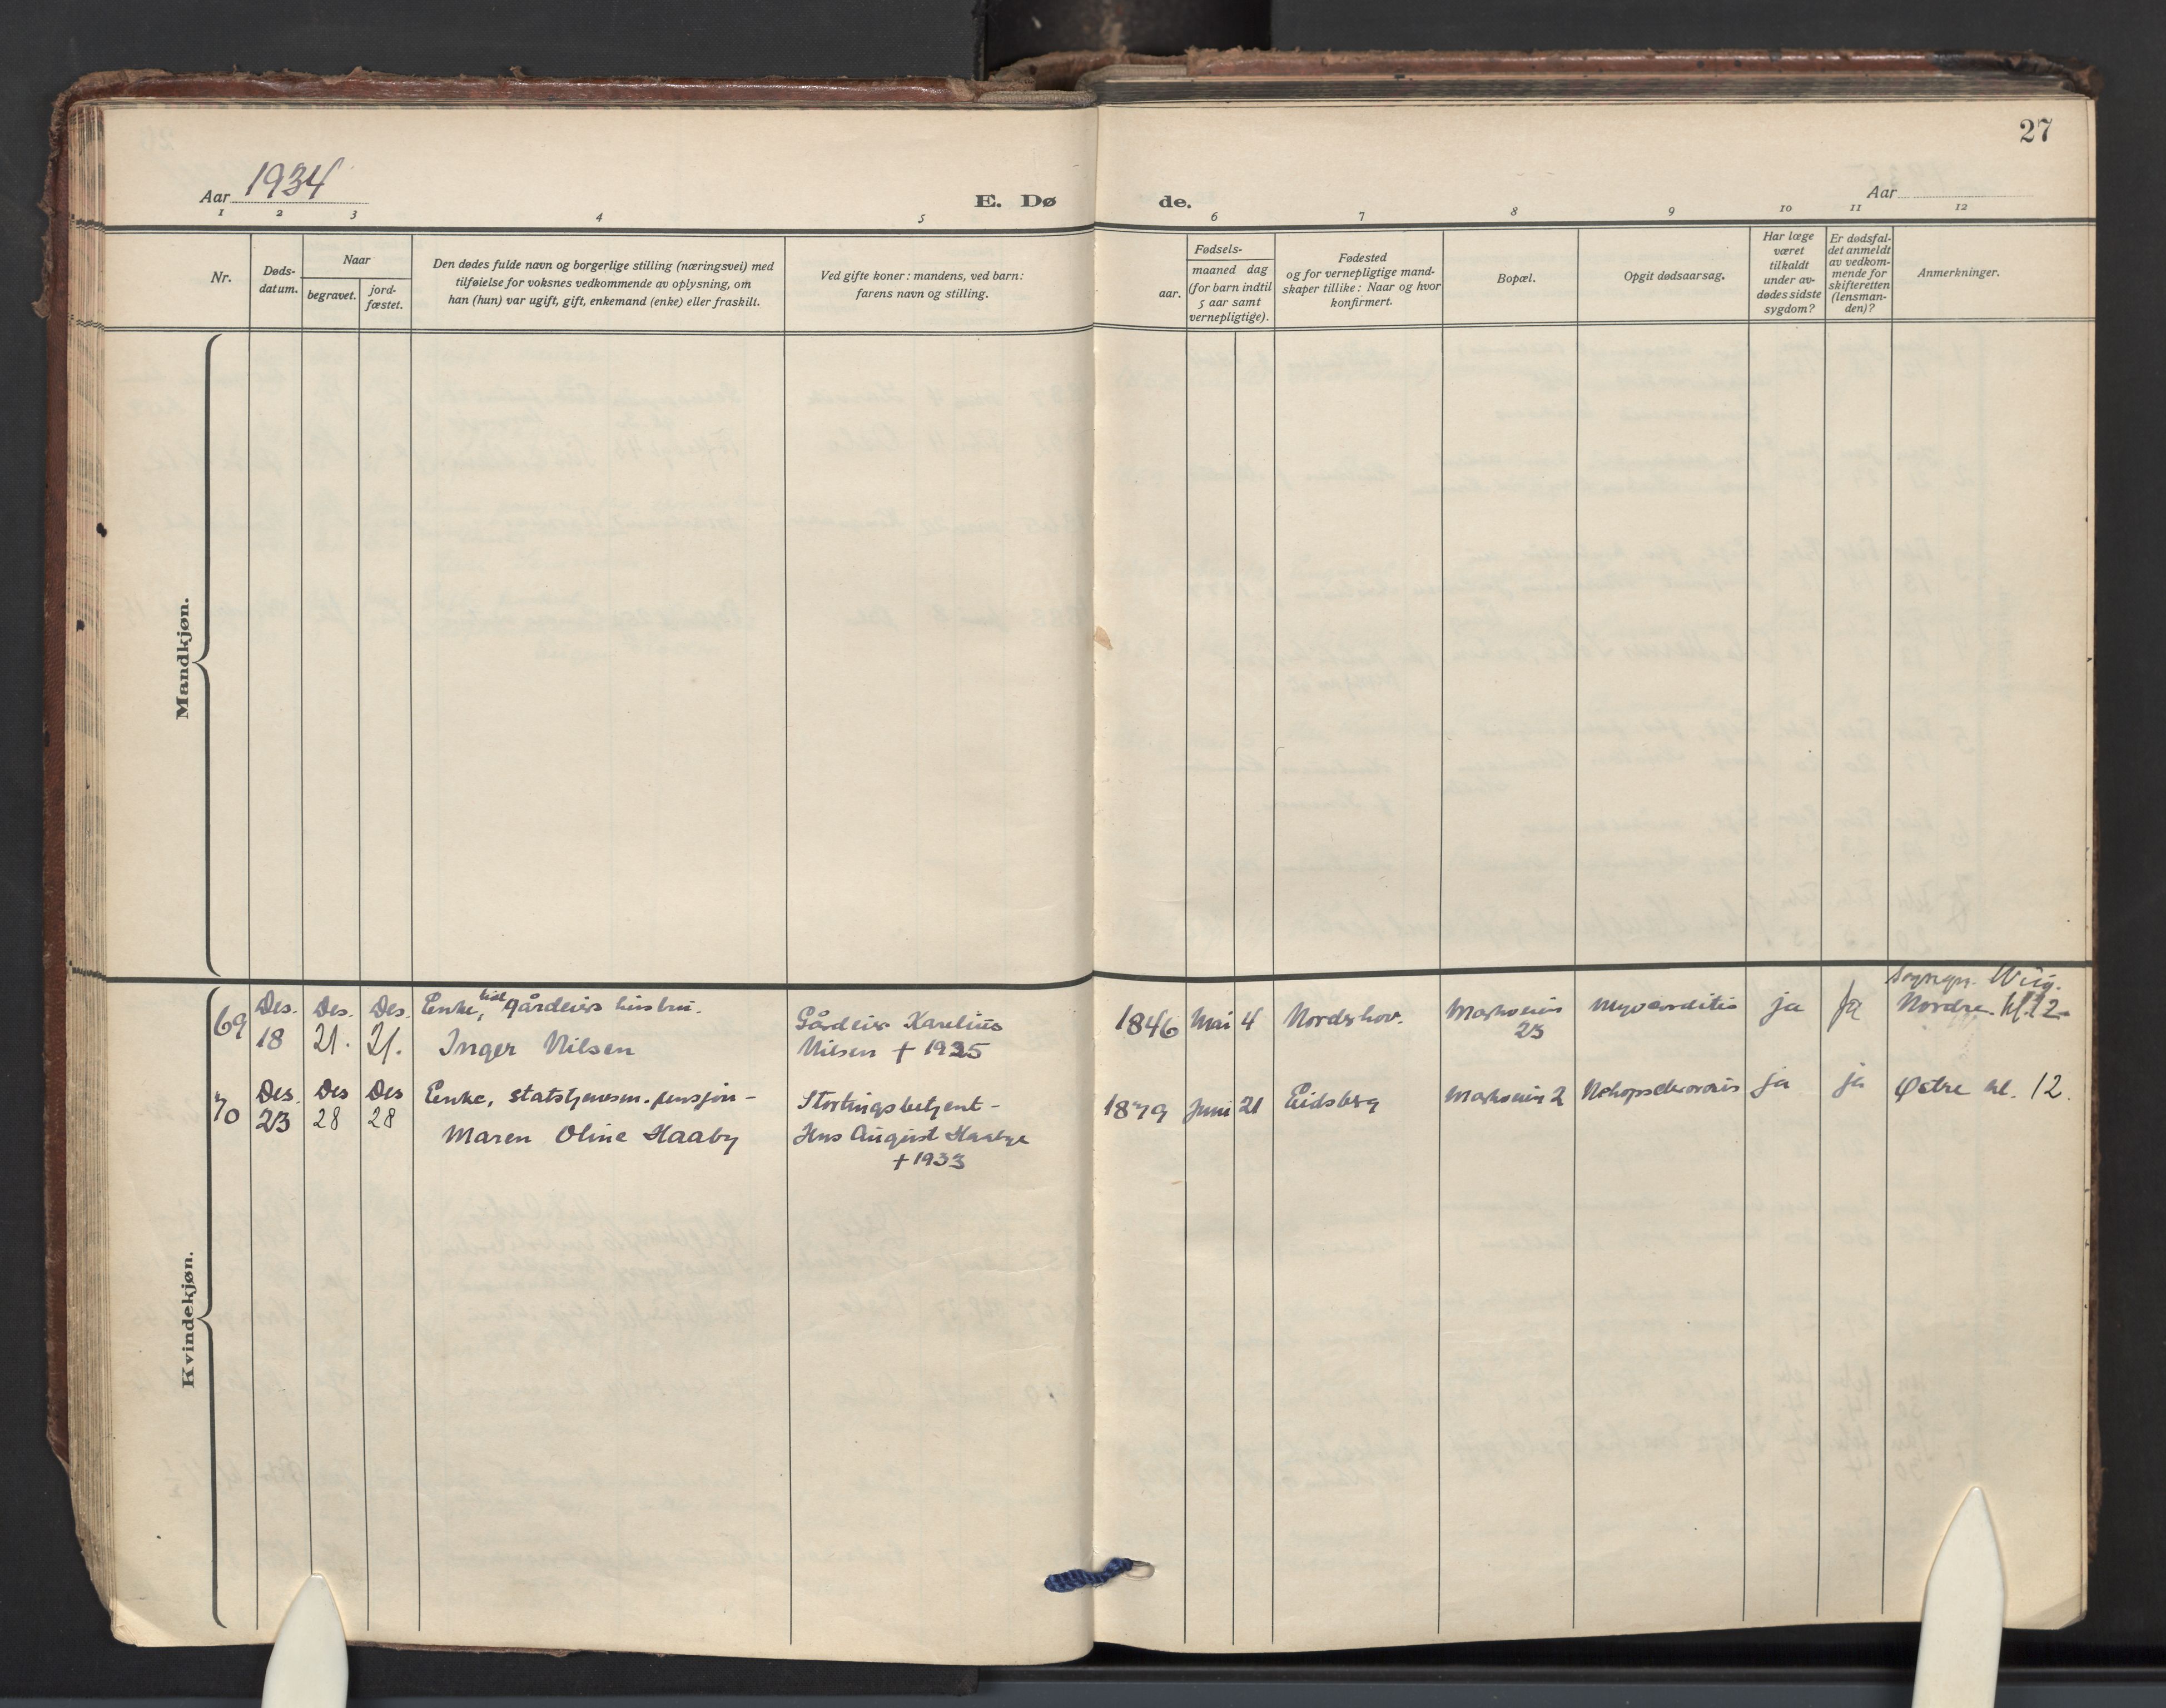 27
Aar 1934
E. Dø
de.
Aar
1 2 3 4 5 6 7 8 9 10 11 12
Nr.
Døds-
datum.
Naar
begravet.
jord-
fæstet.
Den dødes fulde navn og borgerlige stilling (næringsvei) med
tilføielse for voksnes vedkommende av oplysning, om
han (hun) var ugift, gift, enkemand (enke) eller fraskilt.
Ved gifte koner: mandens, ved barn:
farens navn og stilling.
Fødsels-
aar.
maaned dag
(for barn indtil
5 aar samt
vernepligtige).
Fødested
og for vernepligtige mand-
skaper tillike: Naar og hvor
konfirmert.
Bopæl.
Opgit dødsaarsag.
Har læge
været
tilkaldt
under av-
dødes sidste
sygdom?
Er dødsfal-
det anmeldt
av vedkom-
mende for
skifteretten
(lensman-
den)?
Anmerkninger.
Mandkjøn.
Kvindekjøn.
69 Des. 18 Des. 21. Des. 21.
Enke, gårdeiers hustru.
Inger Nilsen
Gårdeier Karelius
Nilsen + 1925
1846 Mai 4 Nordrehov.
23
Myocarditis ja ja
Nordre kl. 12.
70 Des. 23 Des 28 Des 28
Enke, statstjenesm. pensjon -
Maren Oline Haaby
Stortingsbetjent -
Hns August Haabye
+ 1933
1879 Juni 21 Eidsberg
2
ja ja
Østre kl. 12.